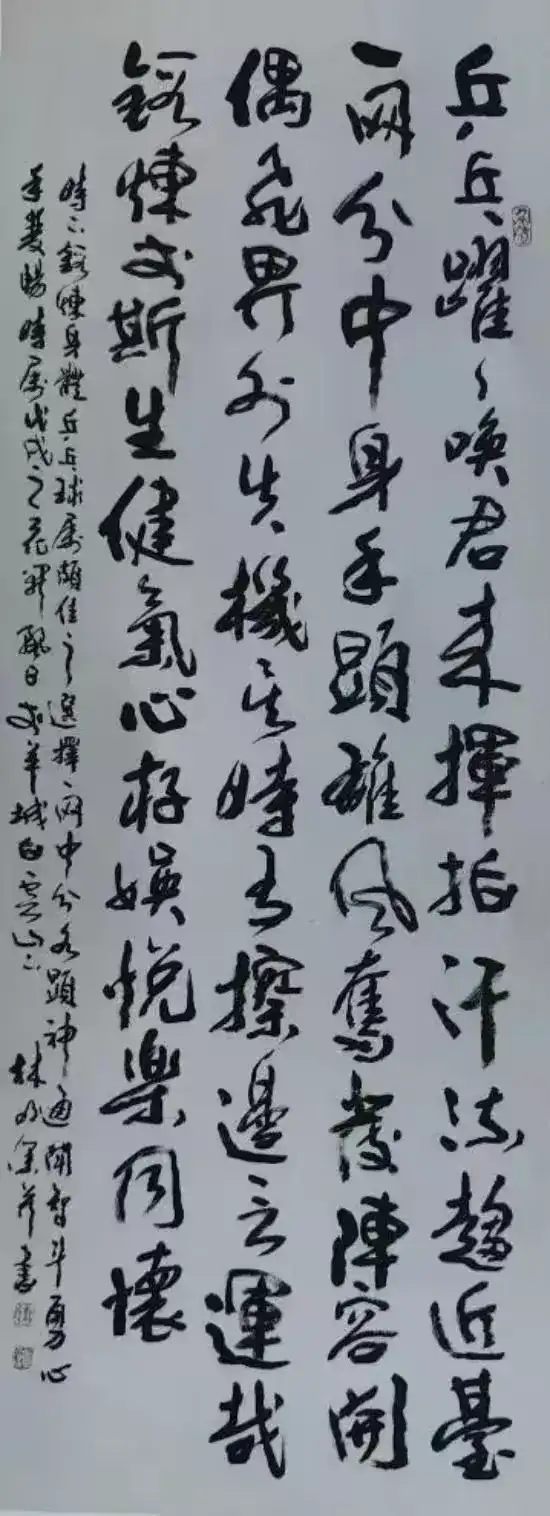 乒乓躍々喚君来揮拍汗流趨近臺
一网分中身手顯雄风奮發陣容開
偶飛界外失機時有擦邊運哉
鍛煉於斯生健氣心存娛悅樂同懷
時下鍛煉身體乒乓球屬頗佳之選擇一网中分各顯神通開智斗勇心
手雙暢時屬戊戌之花日於羊城白雲山下 林書